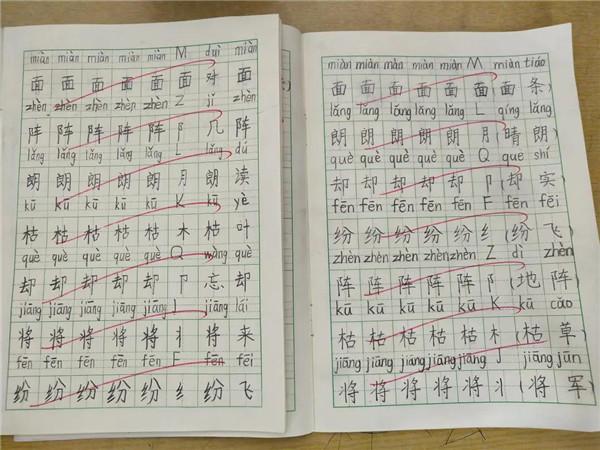 miàn miàn miàn miàn miàn M duì miàn
面 面 面 面 面 面 对 面
zhèn zhèn zhèn zhèn zhèn Z jǐ zhèn
阵 阵 阵 阵 阵 阝 几 阵
lǎng lǎng lǎng lǎng lǎng L lǎng dú
朗 朗 朗 朗 朗 月 朗 读
kū kū kū kū kū K kū yè
枯 枯 枯 枯 枯 木 枯 叶
què què què què què Q wàng què
却 却 却 却 却 卩 忘 却
jiāng jiāng jiāng jiāng jiāng J jiāng lái
将 将 将 将 将 丬 将 来
fēn fēn fēn fēn fēn F fēn fēi
纷 纷 纷 纷 纷 纟 纷 飞
miàn miàn miàn miàn miàn M miàn tiáo
面 面 面 面 面 面 面 条
lǎng lǎng lǎng lǎng lǎng L qíng lǎng
朗 朗 朗 朗 朗 月 (晴 朗
què què què què què Q què shí
却 却 却 却 却 卩 (却 实
fēn fēn fēn fēn fēn F fēn fēi
纷 纷 纷 纷 纷 纟 (纷 飞
zhèn zhèn zhèn zhèn zhèn Z dì zhèn
阵 阵 阵 阵 阵 阝 (地 阵
kū kū kū kū kū K kū cǎo
枯 枯 枯 枯 枯 木 (枯 草
jiāng jiāng jiāng jiāng jiāng J jiāng jūn
将 将 将 将 将 丬 (将 军